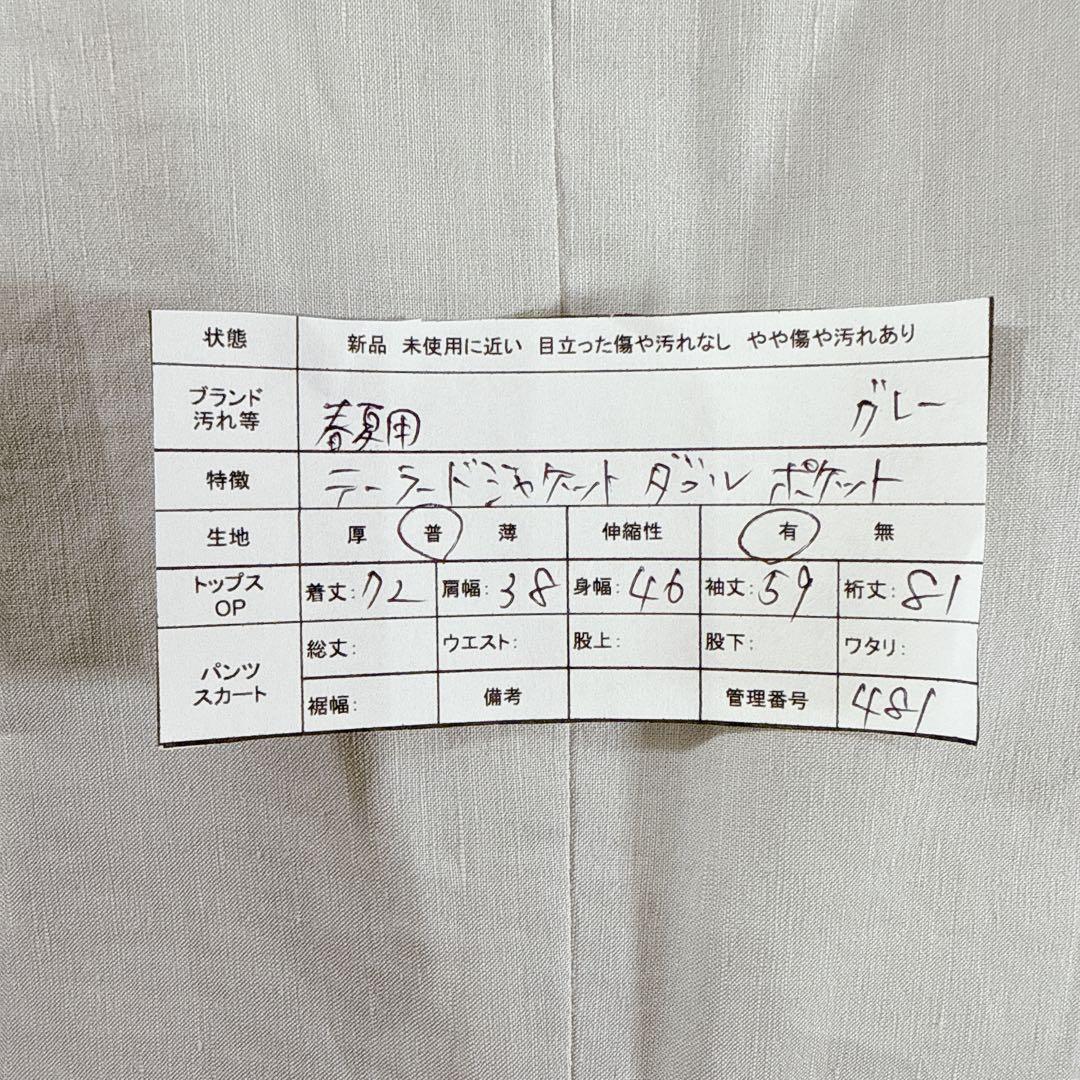 状態 新品 未使用に近い 目立った傷や汚れなし やや傷や汚れあり
ブランド 汚れ等 春夏用 グレー
特徴 テーラードジャケット ダブル ポケット
生地 厚 普 薄 伸縮性 有 無
トップス OP 着丈:72 肩幅:38 身幅:46 袖丈:59 裄丈:81
パンツ スカート 総丈: ウエスト: 股上: 股下: ワタリ:
裾幅: 備考 管理番号 481